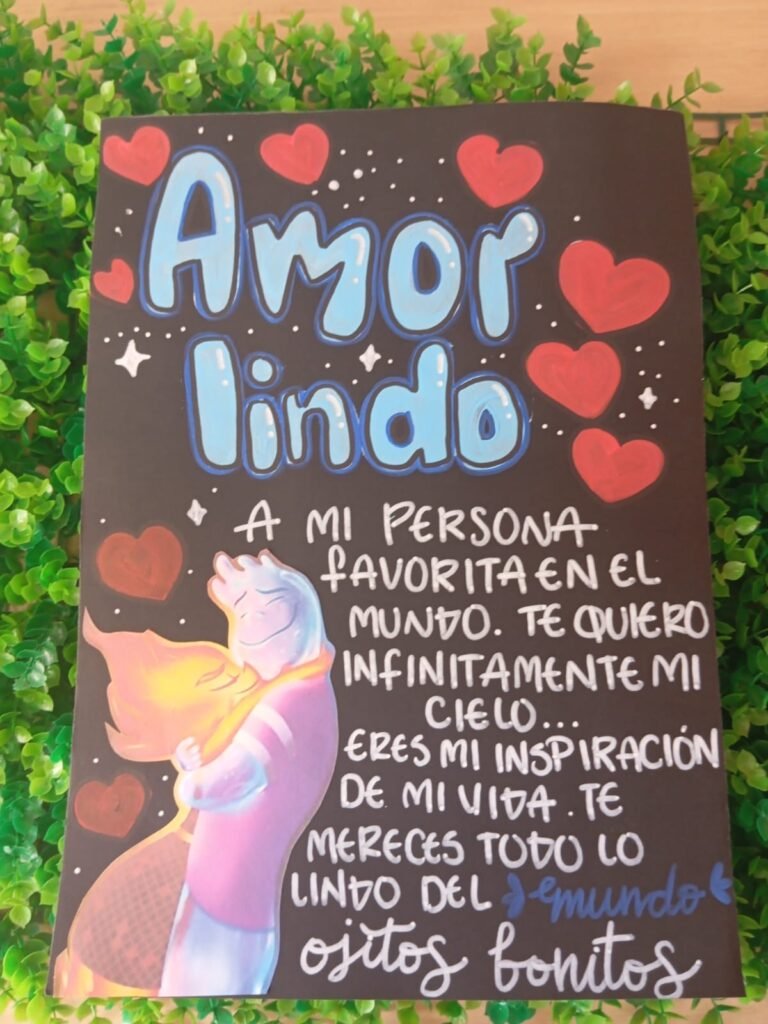 Amor
lindo
A MI PERSONA
FAVORITA EN EL
MUNDO. TE QUIERO
INFINITAMENTE MI
CIELO...
ERES MI INSPIRACIÓN
DE MI VIDA. TE
MERECES TODO LO
LINDO DEL mundo
ojitos bonitos